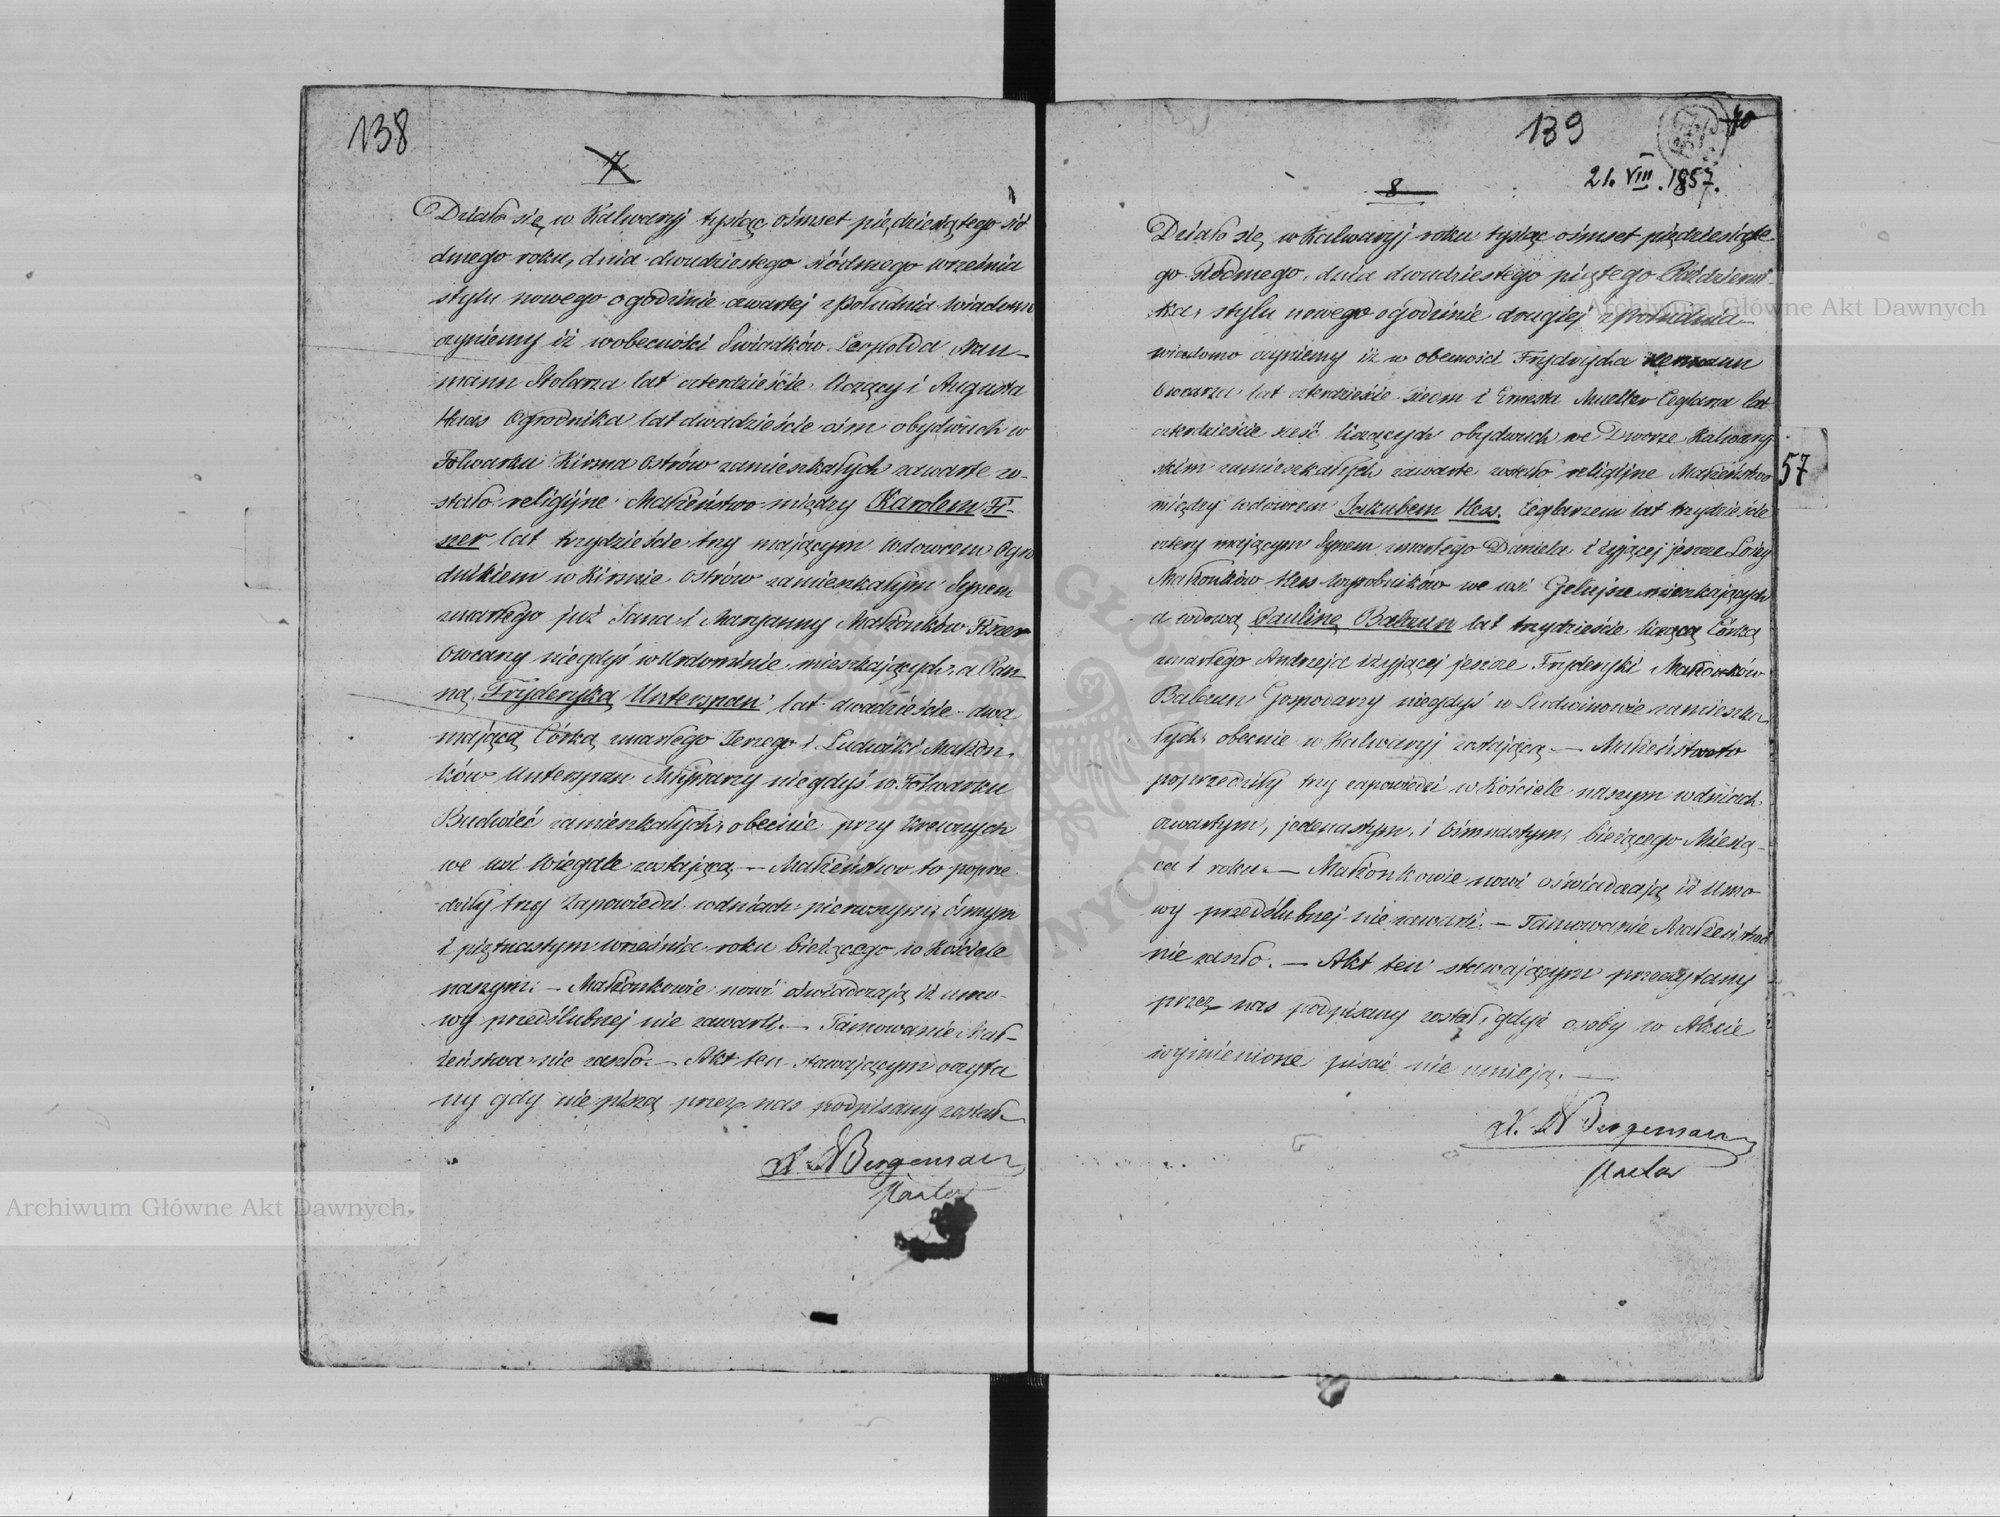 138
7
Działo się w Kalwaryi tysiąc ośmset pięćdziesiątego sió
dmego roku, dnia dwudziestego siódmego września
stylu nowego o godzinie czwartej z południa wiadomo
czyniemy iż wobecności Świadków Leopolda Nau-
mann Stolarza lat czterdzieście liczący i Augusta
Haas Ogrodnika lat dwadzieście ośm obydwuch w
Folwarku Kirsna Ostrów zamieszkałych zawarte zo-
stało religijne Małżeństwo między Karolem Fi-
szer lat trzydzieście trzy mającym wdowcem Ogro
dnikiem w Kirsnie Ostrów zamieszkałym Synem
zmarłego już Jana i Maryanny Małżonków Fiszer
Owczarzy niegdyś w Urdominie mieszkających, a Pan
ną Fryderyką Unterspan lat dwadzieście dwa
mającą Córką zmarłego Jerzego i Ludwiki Małżon-
ków Unterspan Młynarzy niegdyś w Folwarku
Budwieć zamieszkałych, obecnie przy Krewnych
we wsi Wiegale zostającą. — Małżeństwo to poprze
dziły trzy Zapowiedzi w dniach pierwszym, ósmym
i piętnastym września roku bieżącego w Kościele
naszym. — Małżonkowie nowi oświadczają iż umo-
wy przedślubnej nie zawarli. — Tamowanie Mał-
żeństwa nie zaszło. — Akt ten stawającym czyta
ny gdy nie piszą przez nas podpisany został.
X. Bergemann
Pastor
139
40
21. VIII. 1857.
8
Działo się w Kalwaryi roku tysiąc ośmset pięćdziesiąte
go siódmego, dnia dwudziestego piątego Październi-
ka, stylu nowego o godzinie drugiej z południa
wiadomo czyniemy iż w obecności Frydrycha Hermann
Owczarza lat czterdzieście siedm i Ernesta Mueller Ceglarza lat
czterdzieście sześć liczących obydwuch we Dworze Kalwaryj
skim zamieszkałych zawarte zostało religijne Małżeństwo
między wdowcem Jakubem Hess. Ceglarzem lat trzydzieście
cztery mającym Synem zmarłego Daniela i żyjącej jeszcze Lowizy
Małżonków Hess Wyrobników we wsi Gelujsze mieszkających
a wdową Pauliną Balzun lat trzydzieście liczącą Córką
zmarłego Andrzeja i żyjącej jeszcze Fryderyki Małżonków
Balzun Gospodarzy niegdyś w Ludwinowie zamieszka
łych, obecnie w Kalwaryj zostającą — Małżeństwo to
poprzedziły trzy zapowiedzi w Kościele naszym w dniach
czwartym, jedenastym, i ósmnastym, bieżącego Miesią-
ca i roku. — Małżonkowie nowi oświadczają iż Umo-
wy przedślubnej nie zawarli. — Tamowanie Małżeństwa
nie zaszło. — Akt ten stawającym przeczytany
przez nas podpisany został, gdyż osoby w Akcie
wymienione pisać nie umieją. —
X. Bergemann
Pastor
57
Archiwum Główne Akt Dawnych
Archiwum Główne Akt Dawnych